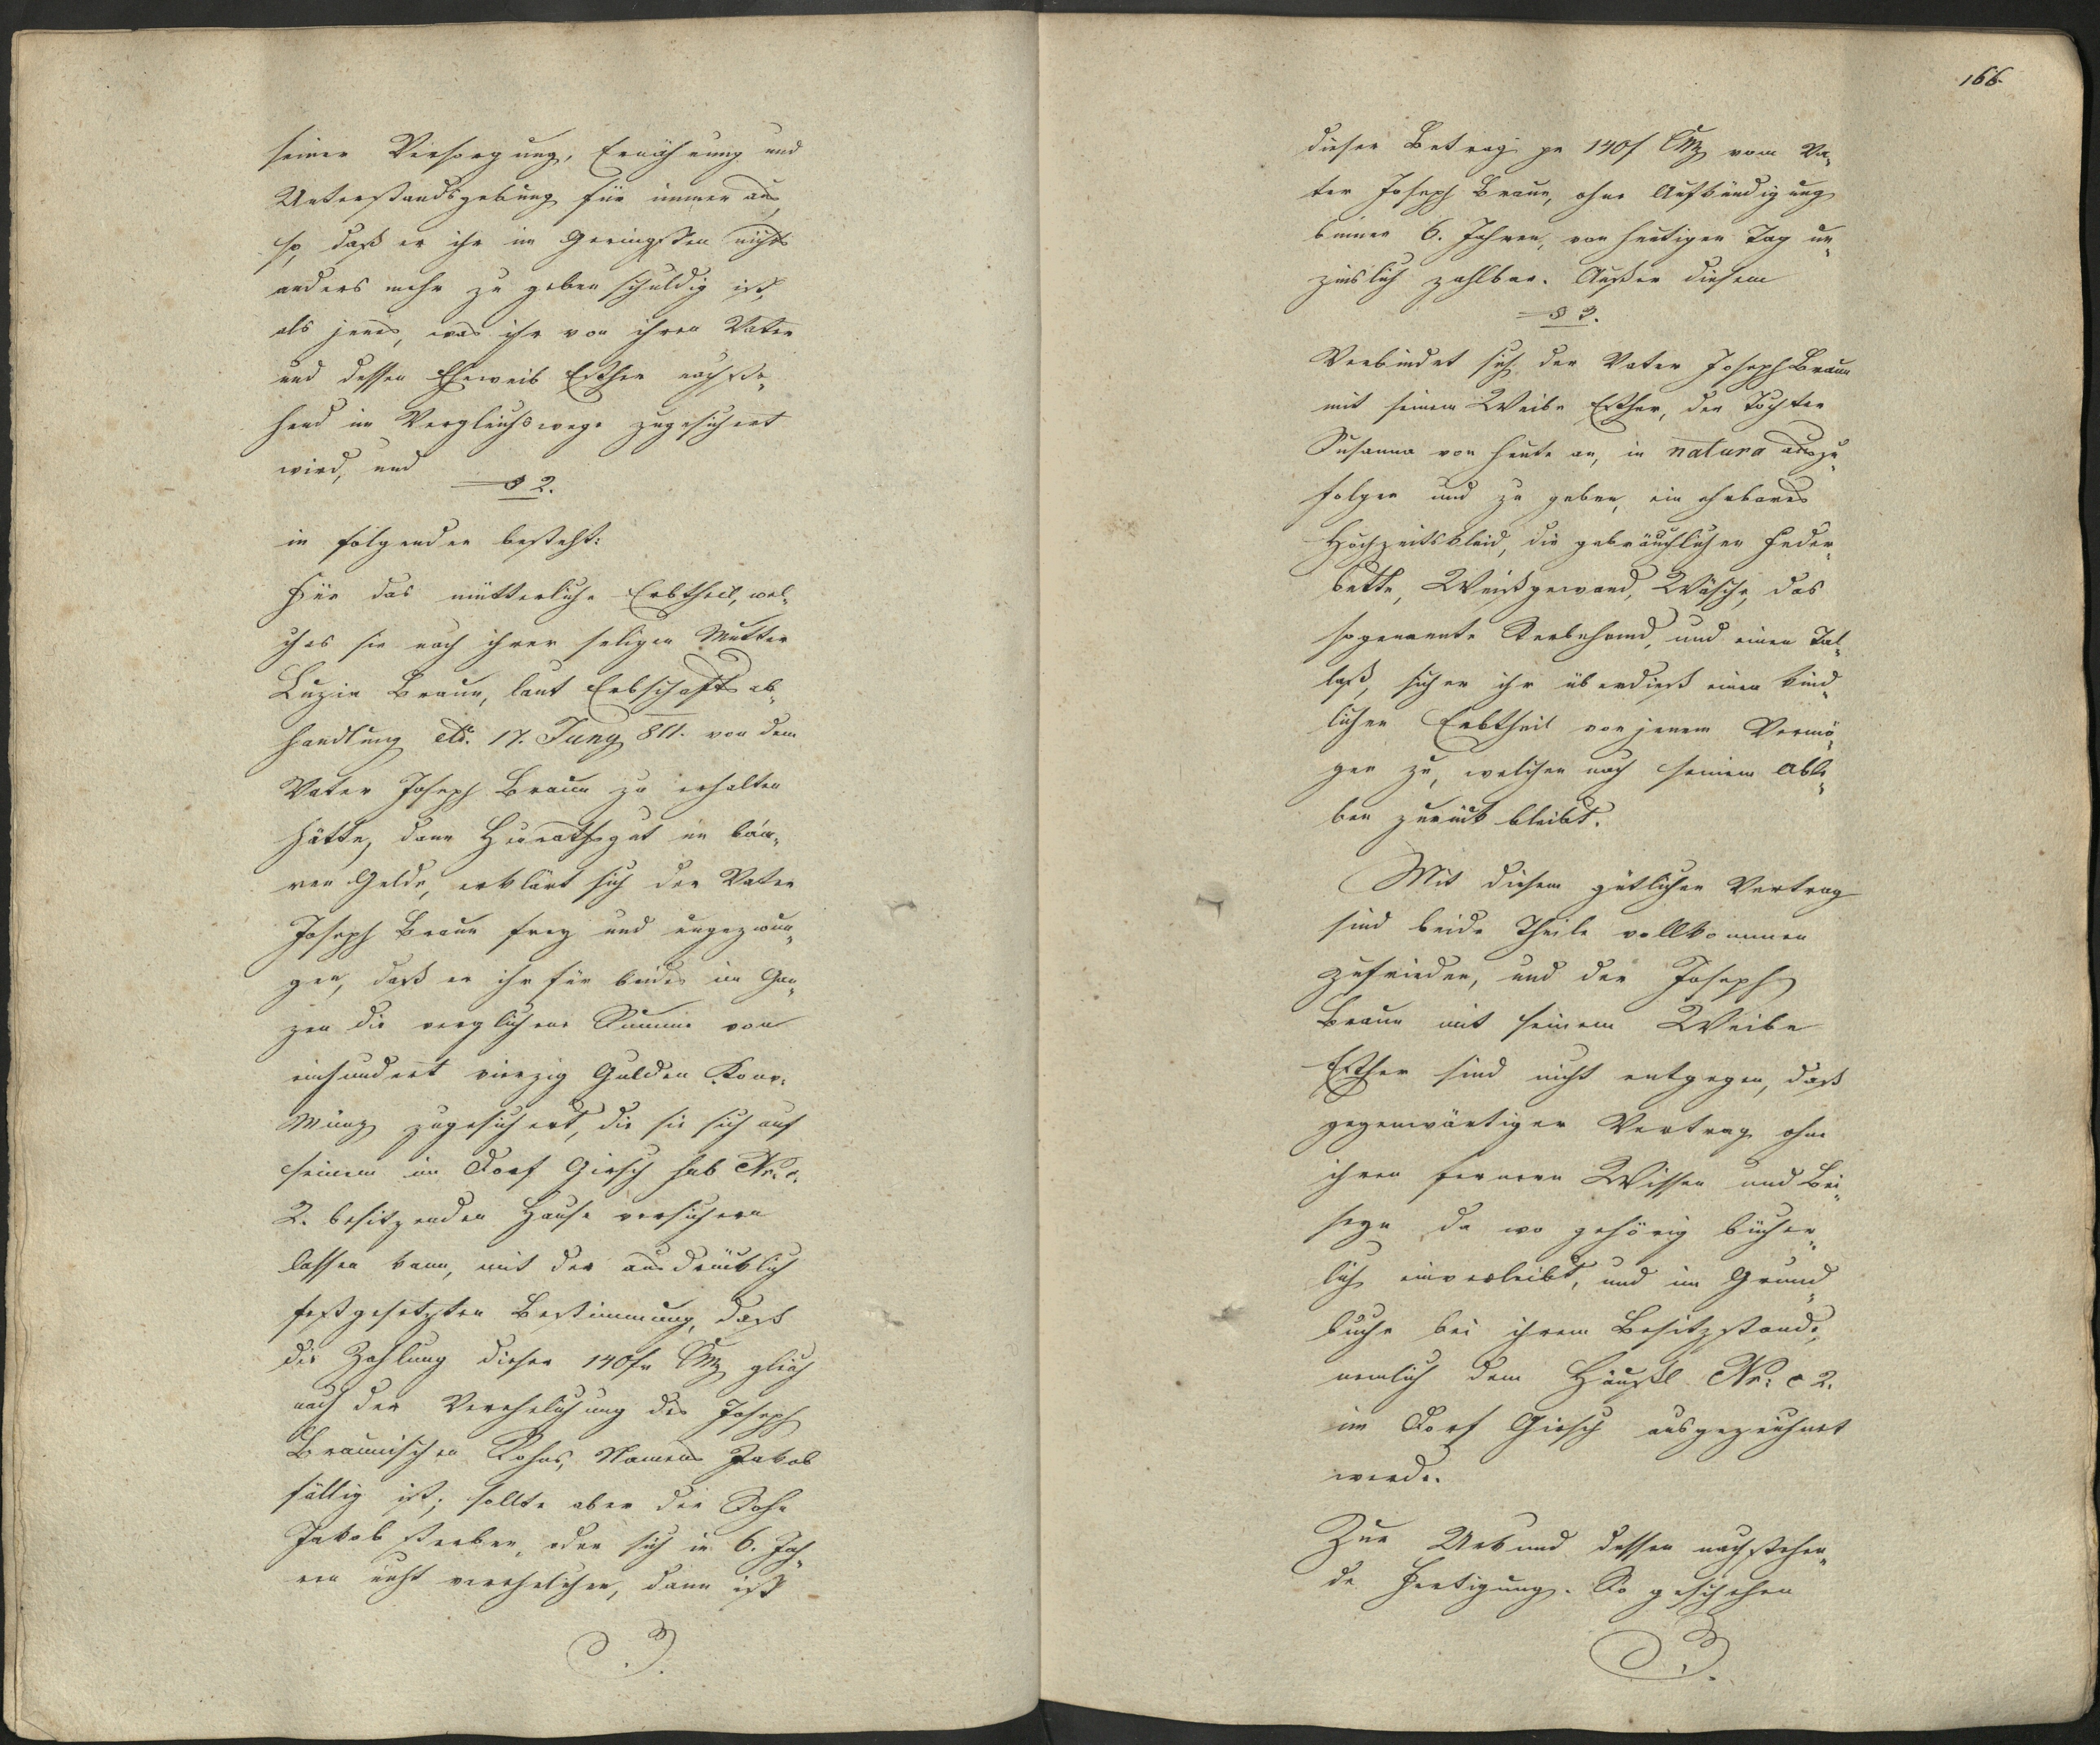 seiner Versorgung, Ernährung und
Unterstandsgebung für immer aus
so, daß er ihr im Geringsten nichts
anders mehr zu geben schuldig ist,
als jenes, was ihr von ihren Vater
und dessen Eheweib Esther nachste„
hend im Vergleichswege zugesichert
wird, und
§ 2.
in folgenden besteht:
Für das mütterliche Erbtheil, wel„
ches sie nach ihrer seligen Mutter
Luzia Braun, laut Erbschaftsab„
handlung dto. 17. Juny 811. von dem
Vater Joseph Braun zu erhalten
hätte, dann Heurathsgut in baa„
ren Gelde, erklärt sich der Vater
Joseph Braun frey und ungezwun„
gen, daß er ihr für beides im Gan„
zen die verglichene Summe von
einhundert vierzig Gulden Konv:
Münz zugesichert, die sie sich auf
seinem im Dorf Girsch sub Nr. c.
2. besitzenden Hause versichern
lassen kann, mit der ausdrücklich
festgesetzten Bestimmung, daß
die Zahlung dieser 140fr CMz gleich
nach der Verehelichung des Joseph
Braunischen Sohns, Namens Jakob
fällig ist; sollte aber der Sohn
Jakob sterben, oder sich in 6. Jah„
ren nicht verehelichen, dann ist
166.
dieser Betrag pr 140f CMz vom Va„
ter Joseph Braun, ohne Aufkündigung
binnen 6. Jahren, von heutigen Tag un„
zinslich zahlbar. Außer diesem
§ 3.
Verbindet sich der Vater Joseph Braun
mit seinem Weibe Esther, der Tochter
Susanna von heute an, in natura auszu„
folgen und zu geben, ein ehrbares
Hochzeitskleid, die gebräuchlichen Feder„
bette, Weißgewand, Wäsche, das
sogenannte Sterbehemd, und einen Tal„
laß, sichen ihr überdieß einen kind„
lichen Erbtheil von jenem Vermö„
gen zu, welches nach seinem Able„
ben zurück bleibt.
Mit diesem gütlichen Vertrag
sind beide Theile vollkommen
zufrieden, und der Joseph
Braun mit seinem Weibe
Esther sind nicht entgegen, daß
gegenwärtiger Vertrag ohne
ihren ferneren Wissen und Bei„
seyn da wo gehörig bücher„
lich einverleibt, und im Grund„
buche bei ihrem Besitzstande,
nemlich dem Häusl Nr: c 2.
im Dorf Girsch ausgezeichnet
werde.
Zur Urkund dessen nachstehen„
de Fertigung. So geschehen